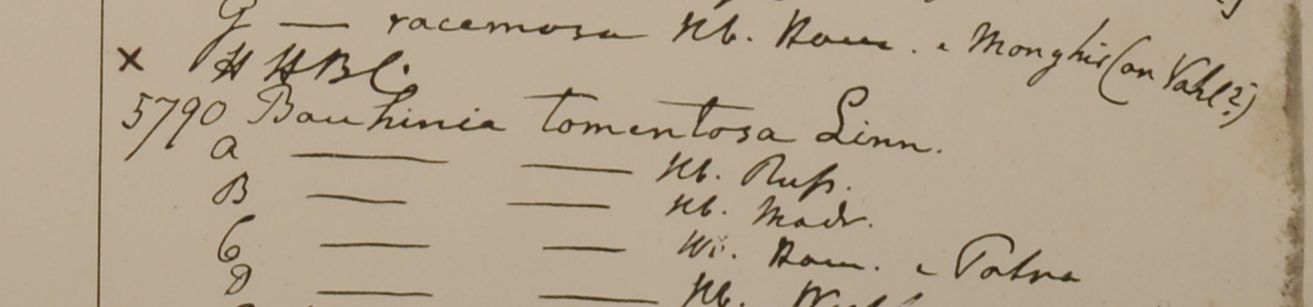 G — racemosa Hb. Ham. e Monghir (an Vahl?)
× H HBC.
5790 Bauhinia tomentosa Linn.
a — — Hb. Russ.
B — — Hb. Madr.
C — — Hb. Ham. e Patna
D — — Hb.